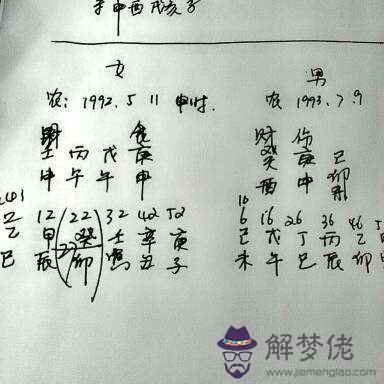 申酉戌亥子
女 男
农: 1992.5 11 申时. 农 1993.7.9
财 食 财 伤
壬 丙 戊 庚 癸 庚 己
申 午 午 申 酉 申 卯
乙 12 22 32 42 52 6 16 26 36 46
甲 癸 壬 辛 庚 己 戊 丁 丙 乙
巳 辰 卯 丑 子 未 午 巳 辰 卯
解梦佬
www.jiemenglao.com